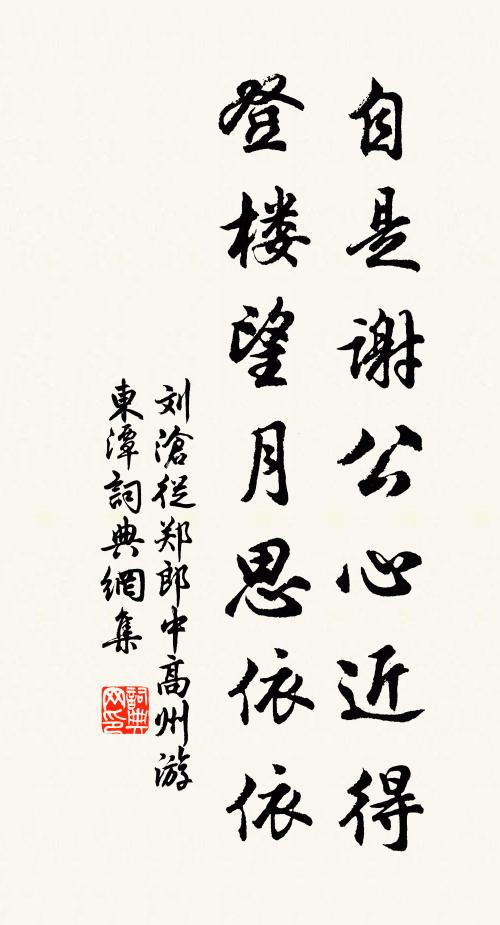 自是谢公心近得
登楼望月思依依
刘滄従郑郎中高州游
東潭詞典網集
詞典网印